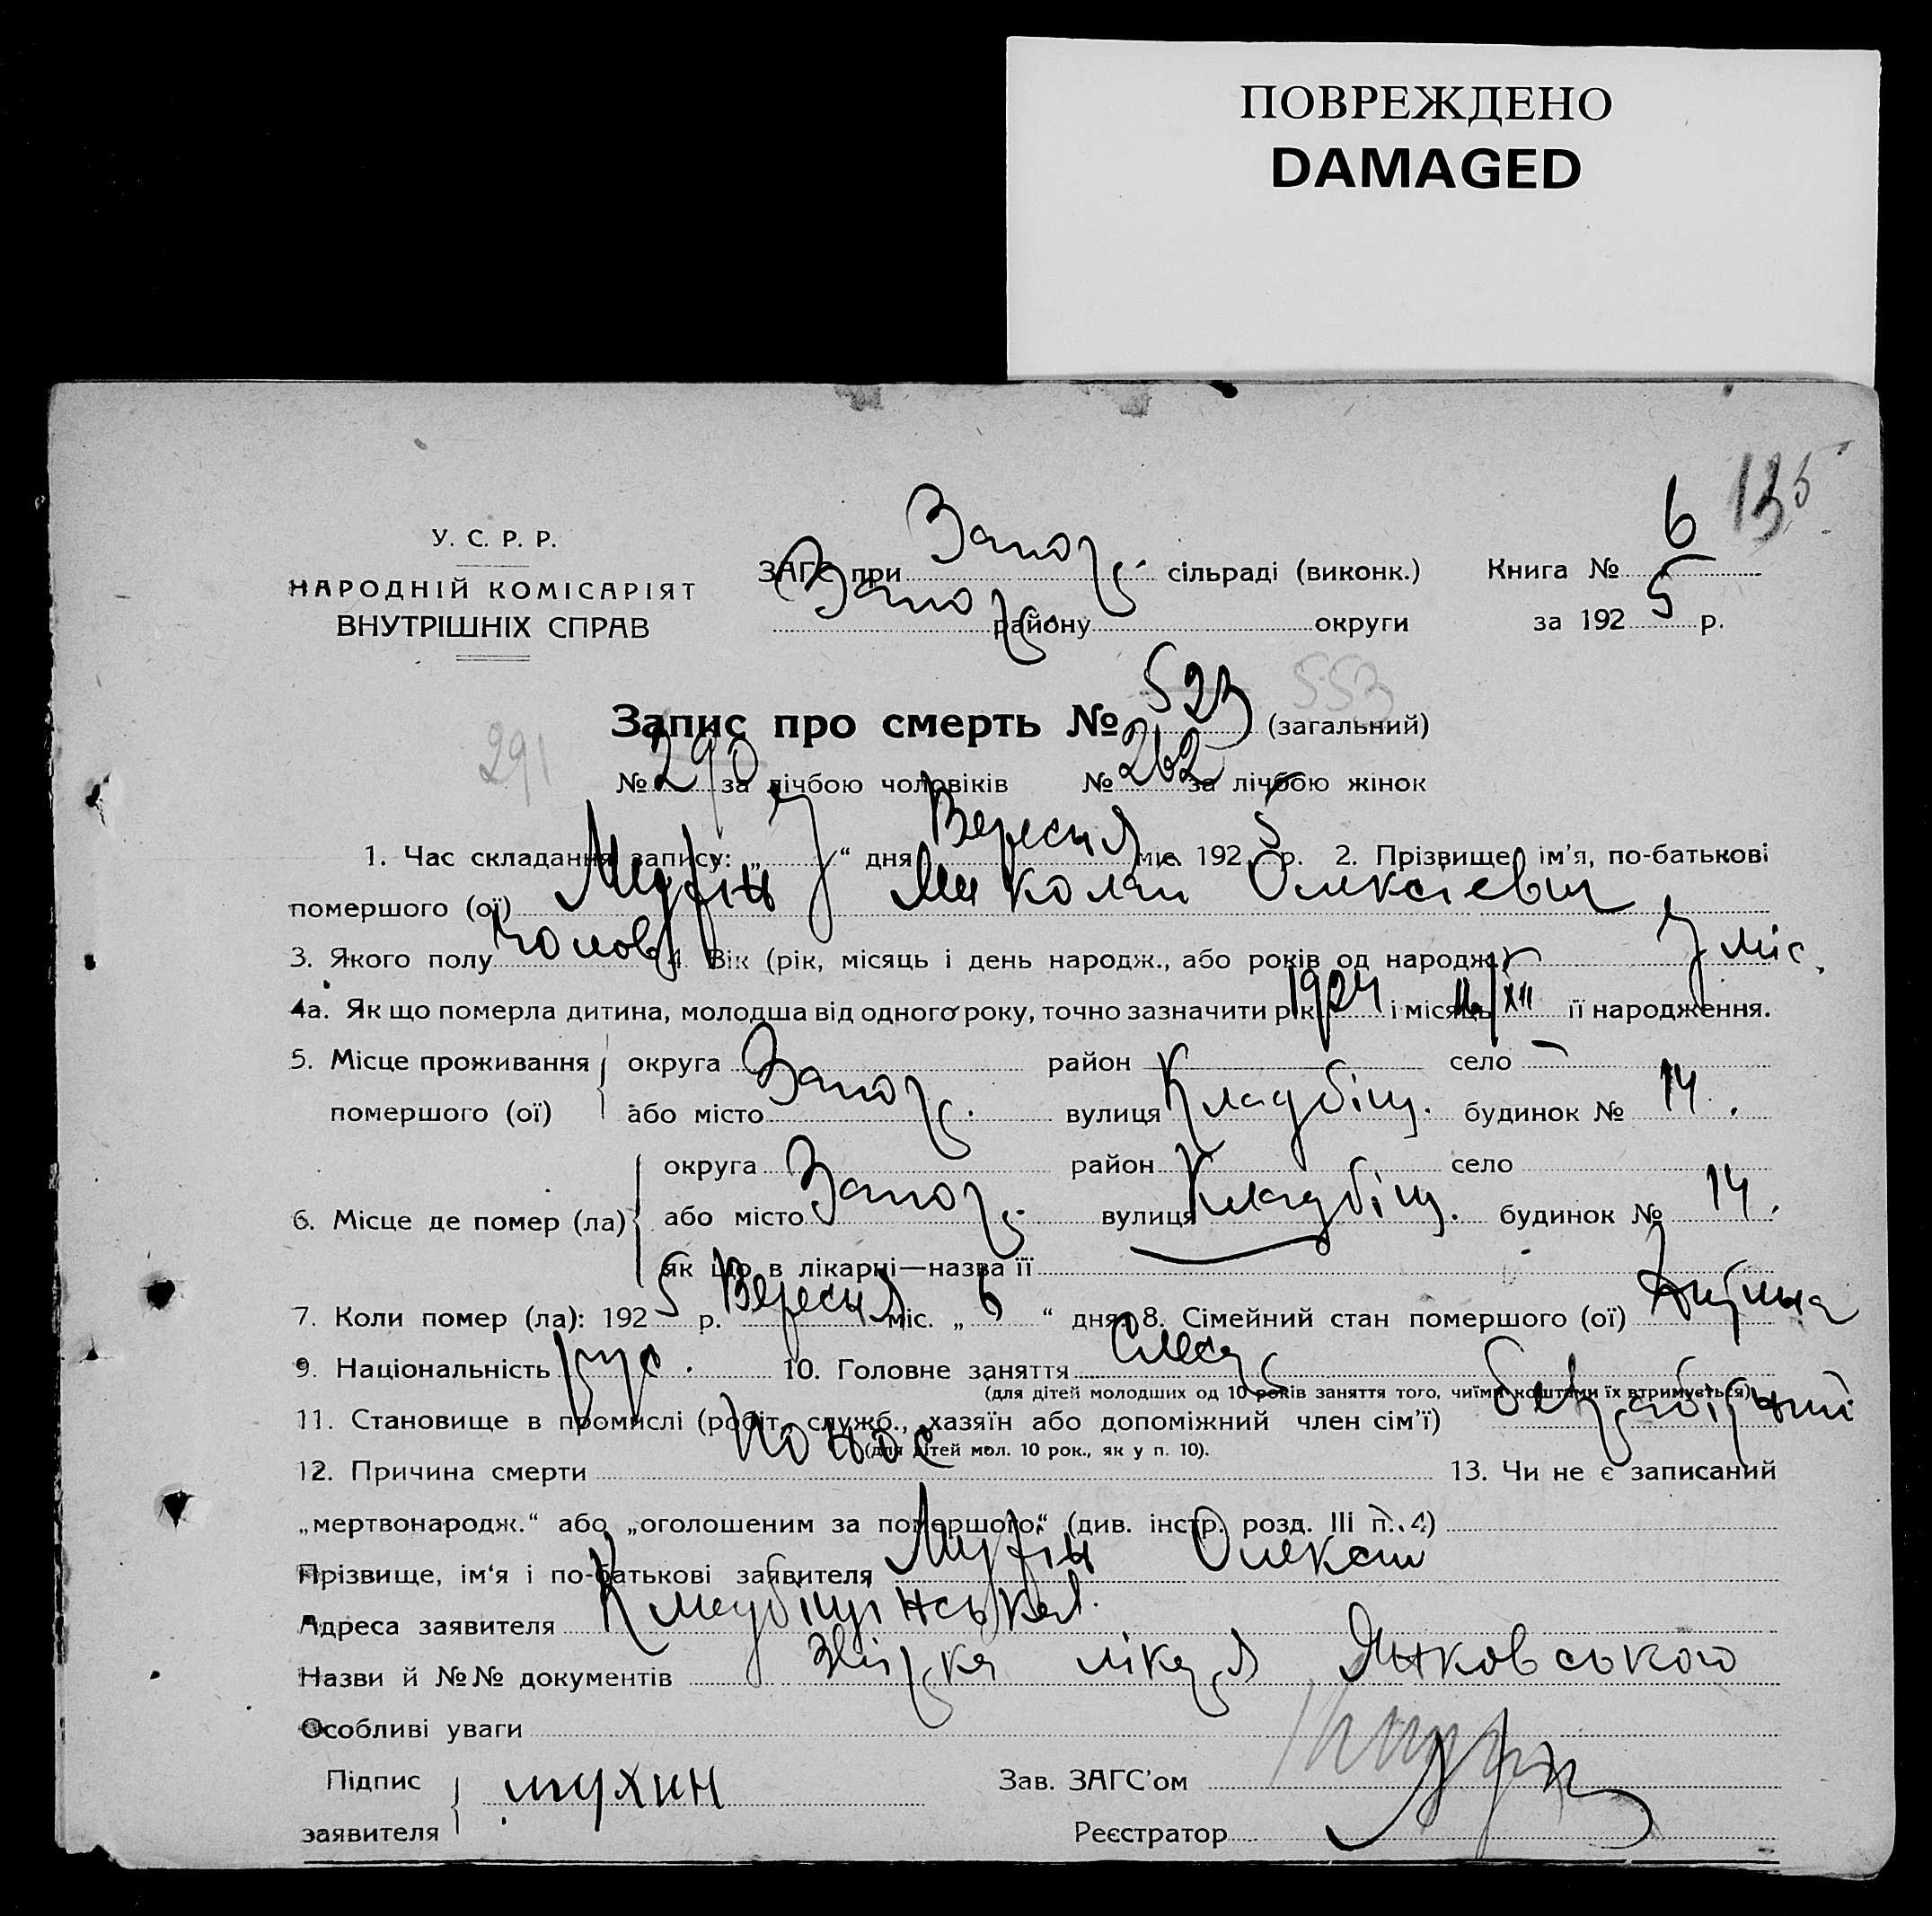 ПОВРЕЖДЕНО
DAMAGED
135
У. С. Р. Р.
НАРОДНІЙ КОМІСАРІЯТ
ВНУТРІШНІХ СПРАВ
ЗАГС при Запор. сільраді (виконк.) Книга № 6
Запор. району округи за 1925 р.
Запис про смерть № 523 (загальний) 553
291 № 290 за лічбою чоловіків № 262 за лічбою жінок
1. Час складання запису: „ 7 “ дня Вересня міс. 1925 р. 2. Прізвище, ім’я, по-батькові
помершого (ої) Мухін Миколай Олексієвич
3. Якого полу чолов. 4. Вік (рік, місяць і день народж., або років од народж.) 7 міс.
4а. Як що померла дитина, молодша від одного року, точно зазначити рік 1924 і місяць /XII її народження.
5. Місце проживання округа район село —
помершого (ої) або місто Запор. вулиця Кладбіщ. будинок № 14.
6. Місце де помер (ла) округа район село
або місто Запор. вулиця Кладбіщ. будинок № 14.
як що в лікарні—назва її
7. Коли помер (ла): 1925 р. Вересня міс. „ 6 “ дня. 8. Сімейний стан помершого (ої)
9. Національність рус. 10. Головне заняття Слесар
(для дітей молодших од 10 років заняття того, чиїми коштами їх втримується)
11. Становище в промислі (робіт., служб., хазяїн або допоміжний член сім’ї) безробітний
(для дітей мол. 10 рок., як у п. 10).
12. Причина смерти Понос 13. Чи не є записаний
„мертвонародж.“ або „оголошеним за помершого“ (див. інстр. розд. III п. 4)
Прізвище, ім‘я і по-батькові заявителя Мухін Олексій
Адреса заявителя Кладбіщінська
Назви й №№ документів Звідка лікаря Янковського
Особливі уваги
Підпис заявителя мухин
Зав. ЗАГС’ом
Реєстратор